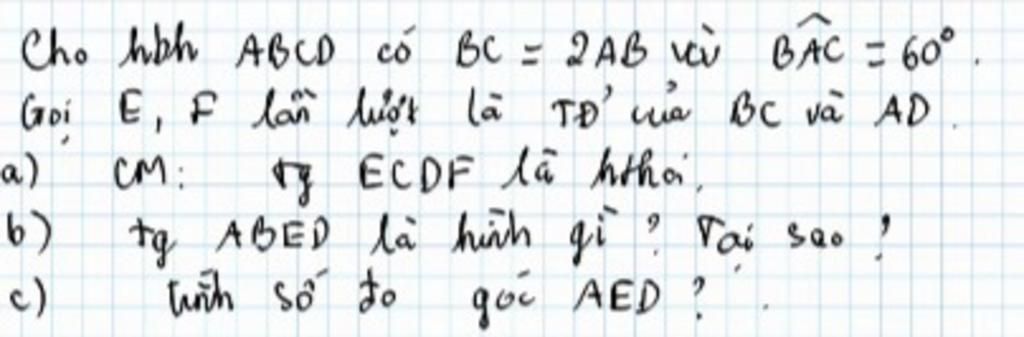 Cho hbh ABCD có BC = 2AB và BAC = 60°.
Gọi E, F lần lượt là TĐ' của BC và AD.
a) CM: tg ECDF là hthoi.
b) tg ABED là hình gì? Tại sao?
c) tính số đo góc AED?.